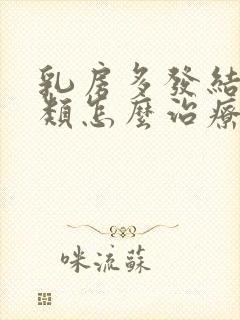 乳房多發結
類怎麼治療
咪流蘇